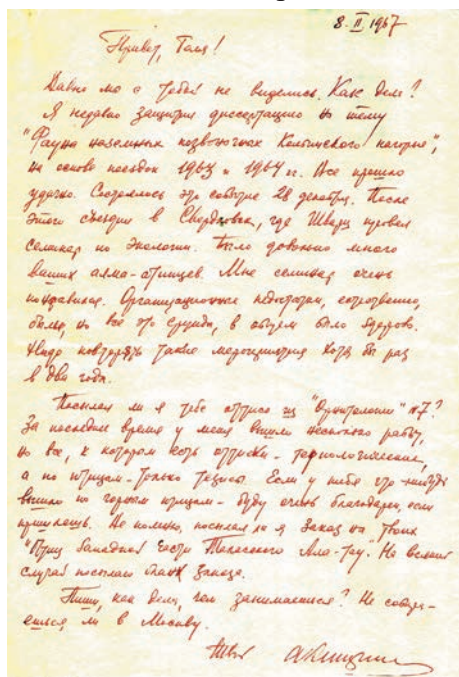 8.II 1967
Привет, Галя!
Давно мы с тобой не виделись. Как дела?
Я недавно защитил диссертацию на тему
"Фауна наземных позвоночных Колымского нагорья",
на основе поездок 1963 и 1964 гг. Все прошло
удачно. Состоялось это событие 28 декабря. После
этого съездил в Свердловск, где Шварц провел
семинар по экологии. Было довольно много
ваших алма-атинцев. Мне семинар очень
понравился. Организационные недостатки, естественно,
были, но все это ерунда, в общем было здорово.
Надо повторять такие мероприятия хотя бы раз
в два года.
Посылал ли я тебе оттиск из "Орнитологии" №7?
За последнее время у меня вышли несколько работ,
но все, к которым есть оттиски - териологические,
а по птицам - только тезисы. Если у тебя что-нибудь
вышло по горным птицам - буду очень благодарен, если
пришлешь. Не помню, посылал ли я заказ на твоих
"Птиц Западной части Таласского Ала-Тау". На всякий
случай посылаю бланк заказа.
Пиши, как дела, чем занимаешься? Не собира-
ешься ли в Москву.
Твой АКищинс